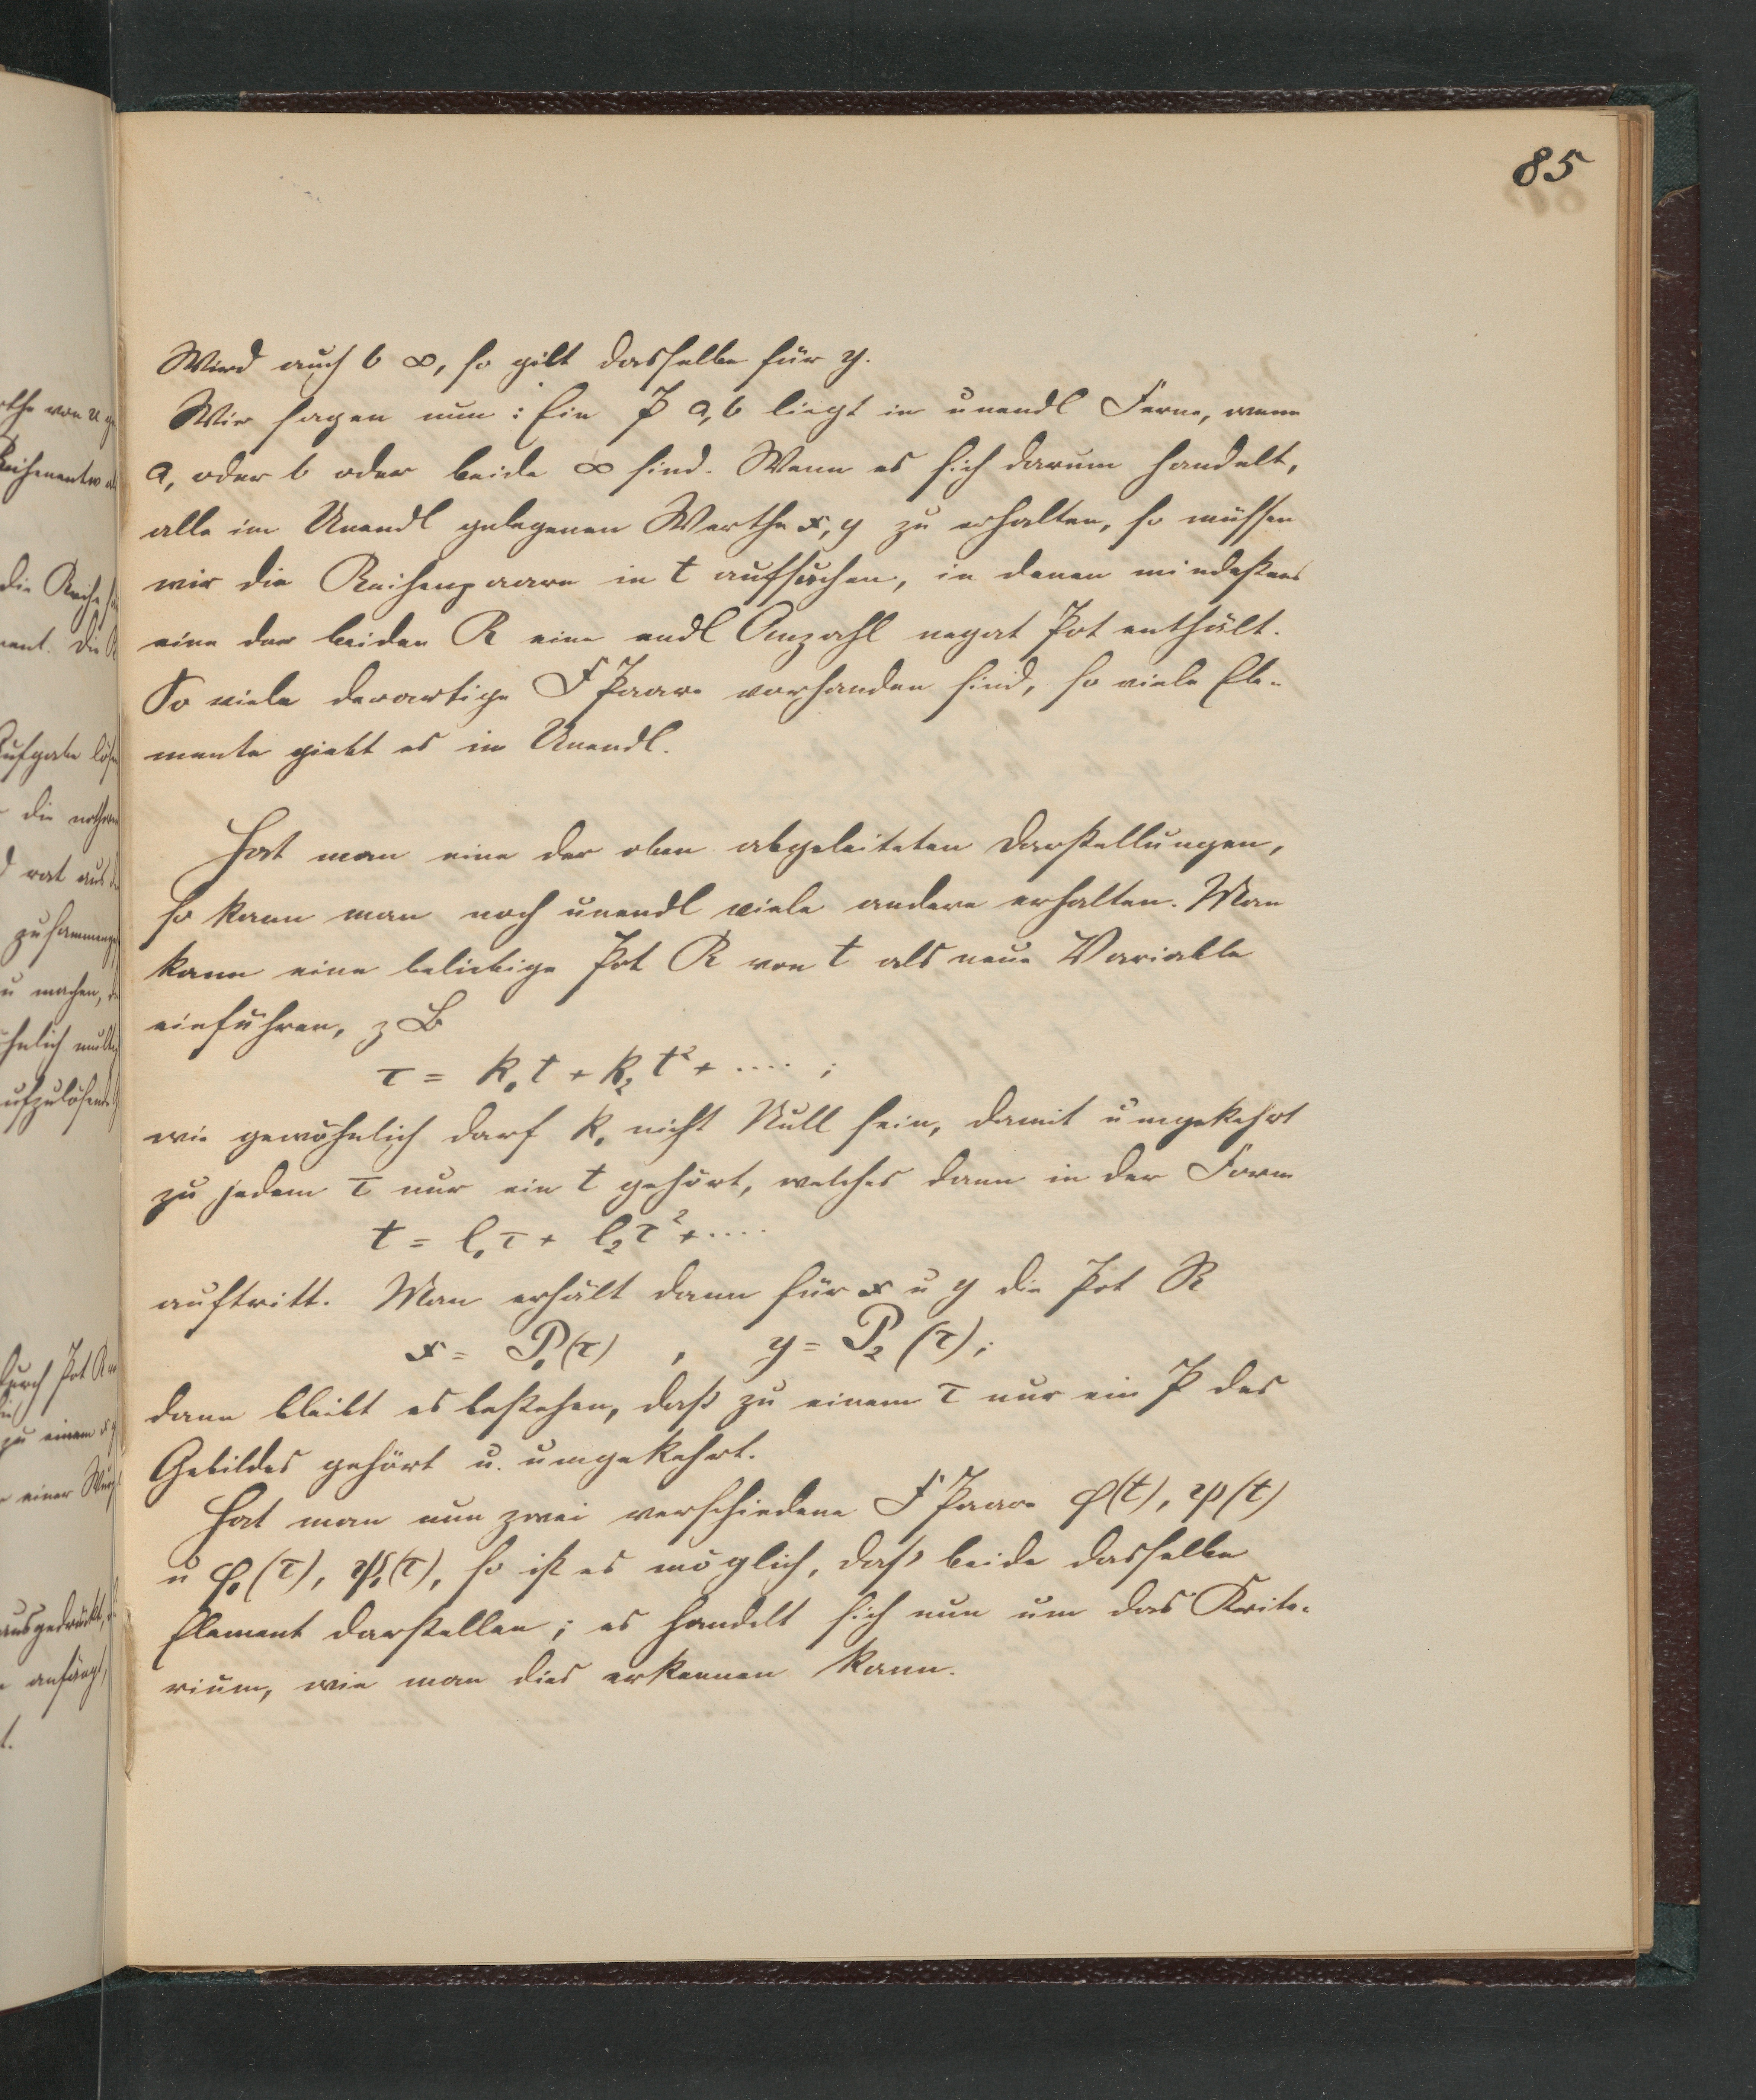 85
Wird auch b ∞, so gilt dasselbe für y.
Wir sagen nun: Ein P a, b liegt in unendl Ferne, wenn
a, oder b oder beide ∞ sind. Wenn es sich darum handelt,
alle im Unendl gelegenen Werthe x, y zu erhalten, so müssen
wir die Reihenpaare in t aufsuchen, in denen mindestens
eine der beiden R eine endl Anzahl negat Pot enthält.
So viele derartige F Paare vorhanden sind, so viele Ele-
mente giebt es im Unendl.
Hat man eine der oben abgeleiteten Darstellungen,
so kann man noch unendl viele andere erhalten. Man
kann eine beliebige Pot R von t als neue Variable
einführen, z B
τ = k₁t + k₂t² + .... ;
wie gewöhnlich darf k₁ nicht Null sein, damit umgekehrt
zu jedem τ nur ein t gehört, welches dann in der Form
t = l₁τ + l₂τ² + ....
auftritt. Man erhält dann für x u y die Pot R
x = P₁(τ) , y = P₂(τ);
dann bleibt es bestehen, daß zu einem τ nur ein P des
Gebildes gehört u. umgekehrt.
Hat man nun zwei verschiedene F Paare φ(t), ψ(t)
u φ₁(τ), ψ₁(τ), so ist es möglich, daß beide dasselbe
Element darstellen; es handelt sich nun um das Krite-
rium, wie man dies erkennen kann.